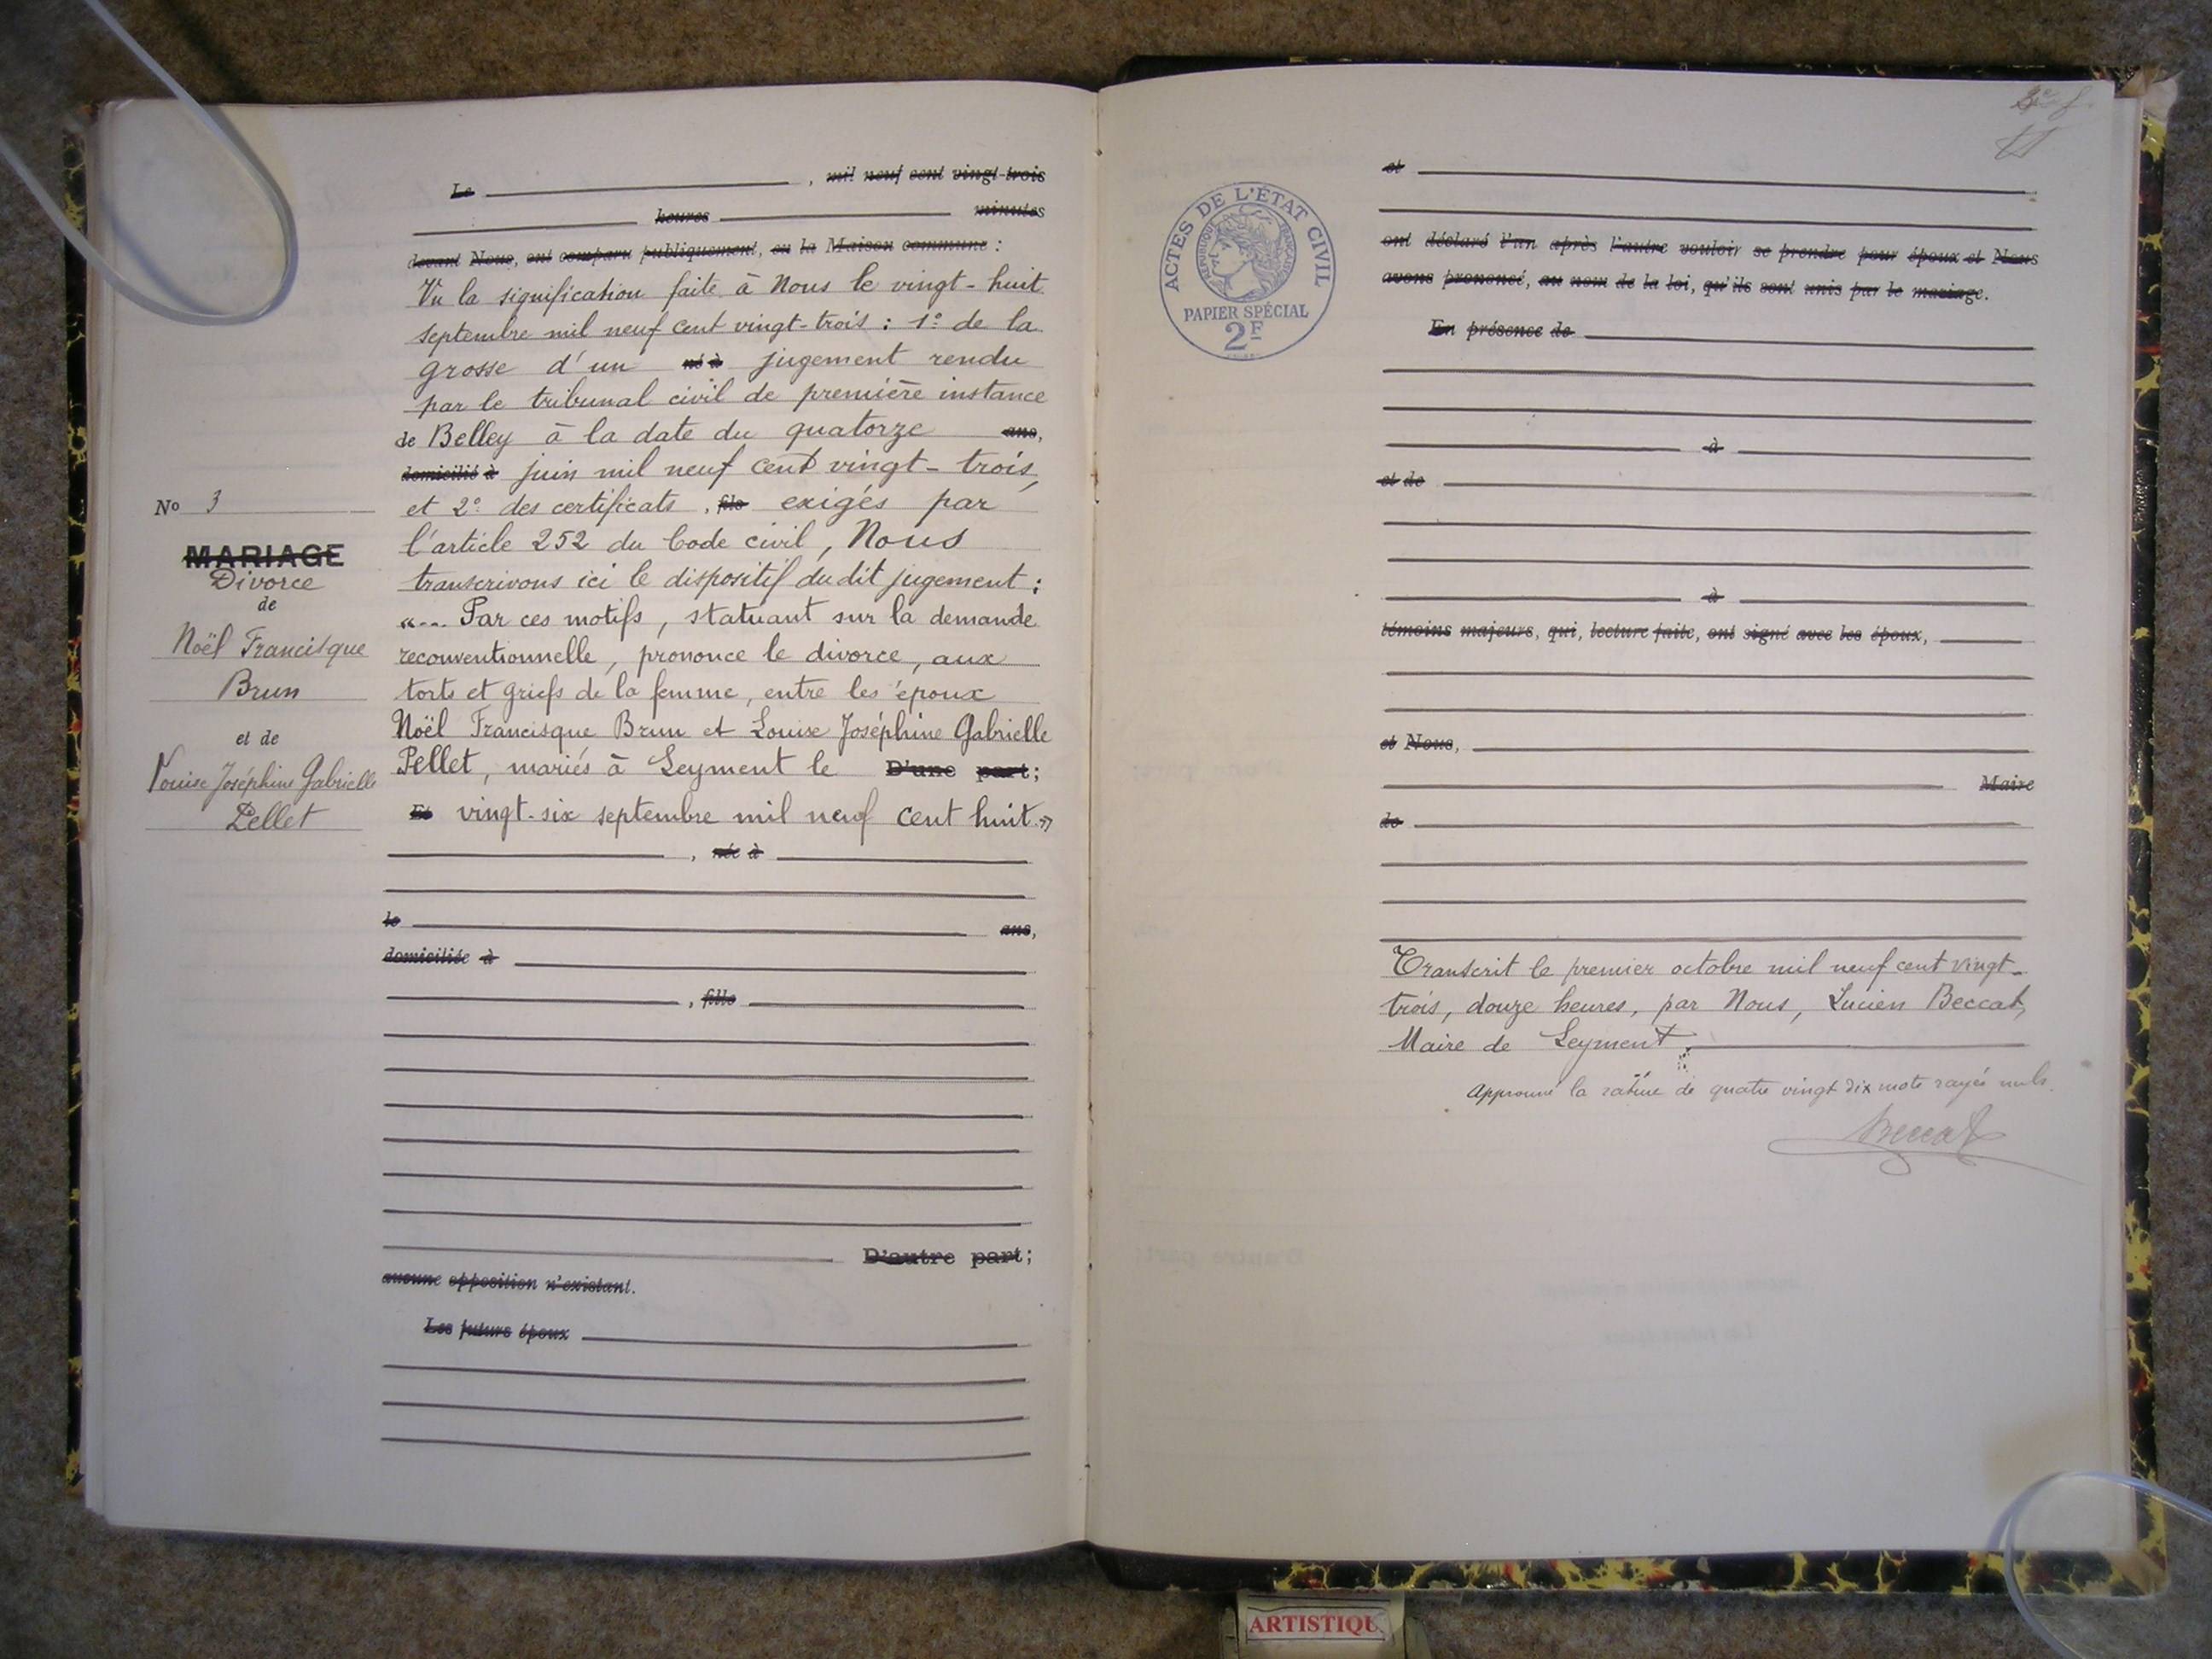 Le , mil neuf cent vingt-trois
heures minutes
devant Nous, ont comparu publiquement, en la Maison commune :
Vu la signification faite à Nous le vingt-huit
septembre mil neuf cent vingt-trois : 1º de la
grosse d'un né à jugement rendu
par le tribunal civil de première instance
de Belley à la date du quatorze ans,
domicilié à juin mil neuf cent vingt-trois,
et 2º des certificats , fils exigés par
l'article 252 du Code civil, Nous
transcrivons ici le dispositif dudit jugement :
"... Par ces motifs, statuant sur la demande
reconventionnelle, prononce le divorce, aux
torts et griefs de la femme, entre les époux
Noël Francisque Brun et Louise Joséphine Gabrielle
Pellet, mariés à Leyment le D'une part;
Et vingt-six septembre mil neuf cent huit."
, née à
le ans,
domiciliée à
, fille
D'autre part;
aucune opposition n'existant.
Les futurs époux
No 3
MARIAGE
Divorce
de
Noël Francisque
Brun
et de
Louise Joséphine Gabrielle
Pellet
ACTES DE L'ÉTAT CIVIL
RÉPUBLIQUE FRANÇAISE
PAPIER SPÉCIAL
2F
et
ont déclaré l'un après l'autre vouloir se prendre pour époux et Nous
avons prononcé, au nom de la loi, qu'ils sont unis par le mariage.
En présence de
à
et de
à
témoins majeurs, qui, lecture faite, ont signé avec les époux,
et Nous,
Maire
de
Transcrit le premier octobre mil neuf cent vingt-
trois, douze heures, par Nous, Lucien Beccat,
Maire de Leyment.
Approuvé la rature de quatre vingt dix mots rayés nuls.
Beccat
ARTISTIQU